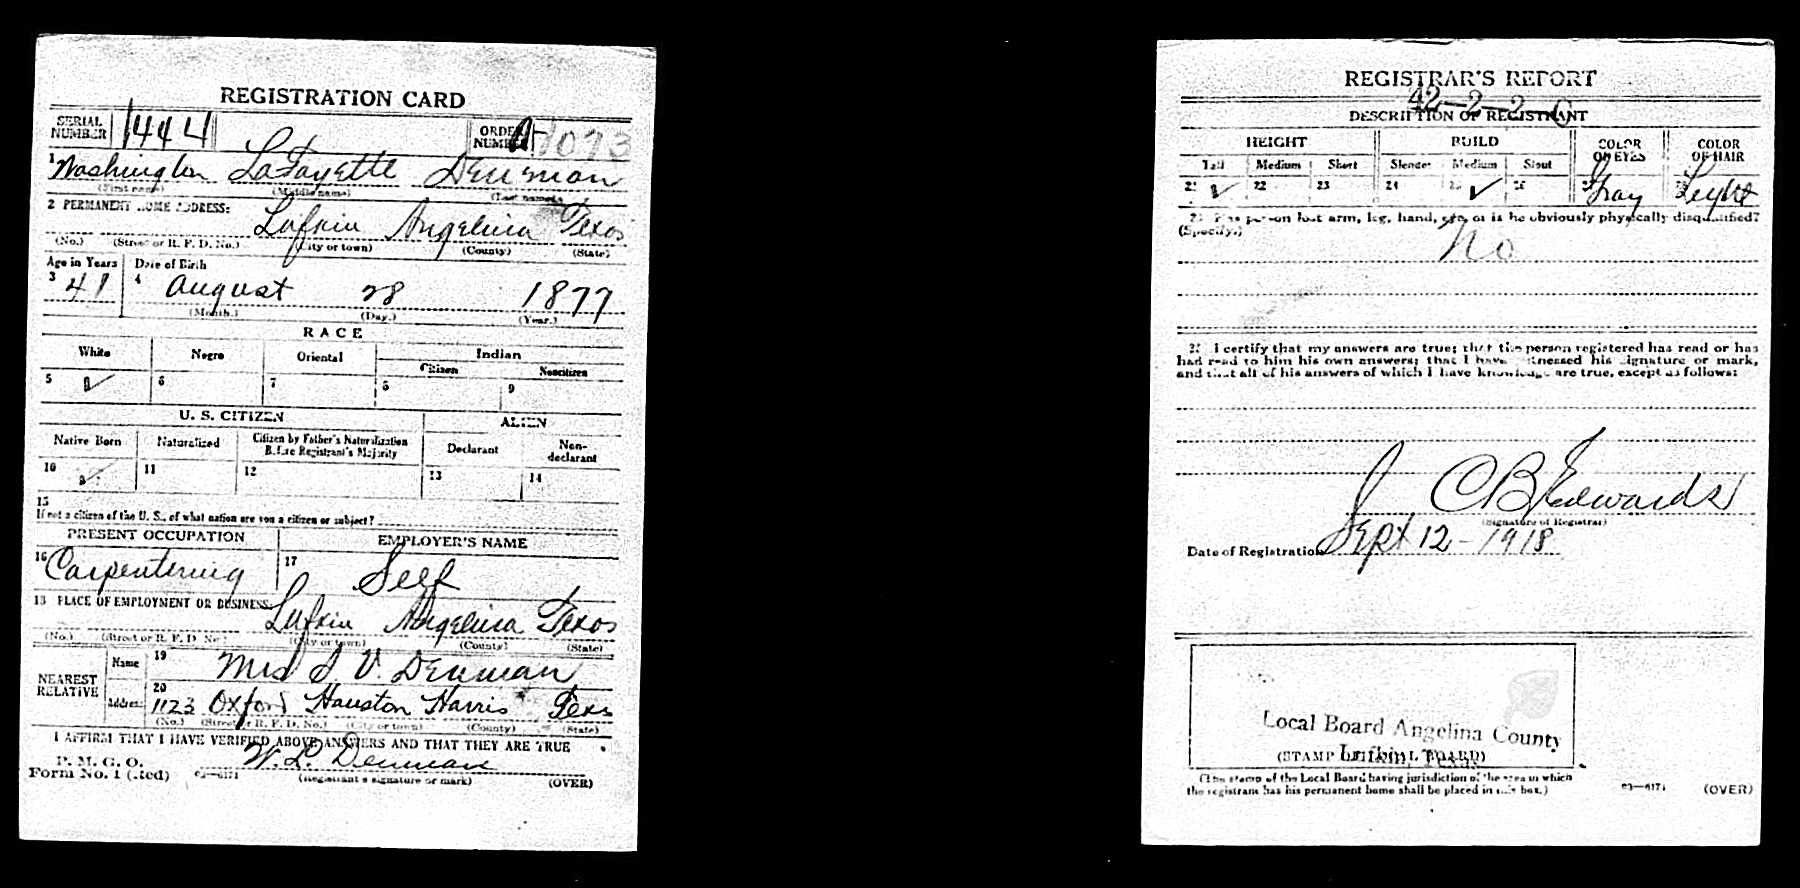 REGISTRATION CARD
SERIAL NUMBER 1444 ORDER NUMBER A1073
1 Washington LaFayette Denman
(First name) (Middle name) (Last name)
2 PERMANENT HOME ADDRESS:
Lufkin Angelina Texas
(No.) (Street or R. F. D. No.) (City or town) (County) (State)
Age in Years Date of Birth
3 41 4 August 28 1877
(Month.) (Day.) (Year.)
RACE
White Negro Oriental Indian
Citizen Noncitizen
5 ✓ 6 7 8 9
U. S. CITIZEN ALIEN
Native Born Naturalized Citizen by Father's Naturalization Before Registrant's Majority Declarant Non-declarant
10 11 12 13 14
15
If not a citizen of the U. S., of what nation are you a citizen or subject?
PRESENT OCCUPATION EMPLOYER'S NAME
16 Carpentering 17 Self
18 PLACE OF EMPLOYMENT OR BUSINESS:
Lufkin Angelina Texas
(No.) (Street or R. F. D. No.) (City or town) (County) (State)
NEAREST RELATIVE
Name 19 Mrs S. V. Denman
Address 20 1123 Oxford Houston Harris Texas
(No.) (Street or R. F. D. No.) (City or town) (County) (State)
I AFFIRM THAT I HAVE VERIFIED ABOVE ANSWERS AND THAT THEY ARE TRUE
P. M. G. O.
Form No. 1 (Red) 03—6171 W. L. Denman
(Registrant's signature or mark) (OVER)
REGISTRAR'S REPORT
42-2-2-C
DESCRIPTION OF REGISTRANT
HEIGHT BUILD COLOR OF EYES COLOR OF HAIR
Tall Medium Short Slender Medium Stout
21 ✓ 22 23 24 25 ✓ 26 27 Gray 28 Light
29 Has person lost arm, leg, hand, eye, or is he obviously physically disqualified?
(Specify.) No
30 I certify that my answers are true; that the person registered has read or has
had read to him his own answers; that I have witnessed his signature or mark,
and that all of his answers of which I have knowledge are true, except as follows:
C B Edwards
(Signature of Registrar)
Date of Registration Sept 12-1918
Local Board Angelina County
Lufkin, Texas
(STAMP OF LOCAL BOARD)
(The stamp of the Local Board having jurisdiction of the area in which
the registrant has his permanent home shall be placed in this box.)
03—6171 (OVER)